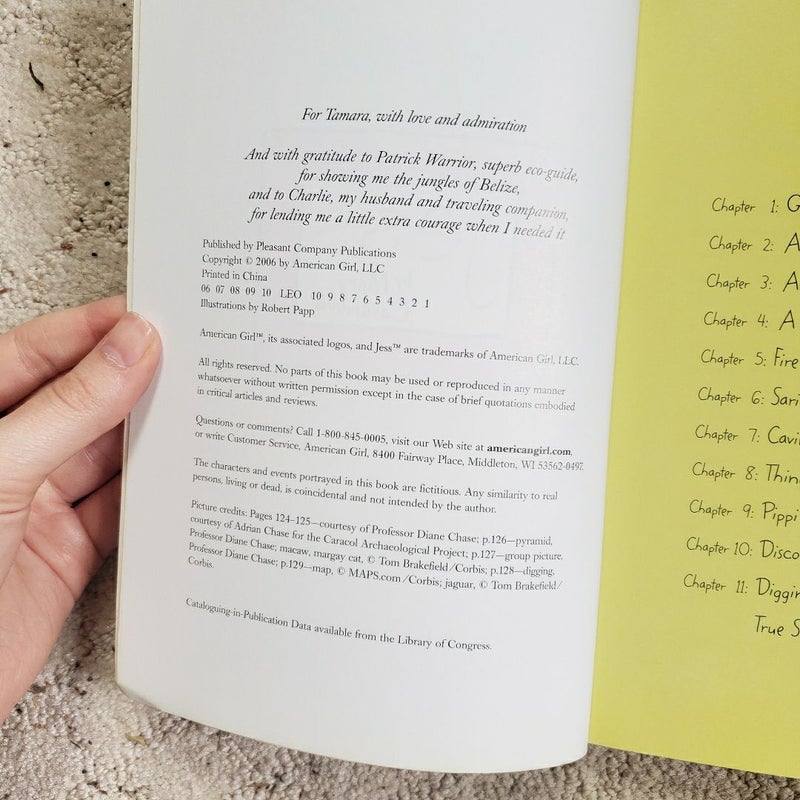 For Tamara, with love and admiration
And with gratitude to Patrick Warrior, superb eco-guide,
for showing me the jungles of Belize,
and to Charlie, my husband and traveling companion,
for lending me a little extra courage when I needed it
Published by Pleasant Company Publications
Copyright © 2006 by American Girl, LLC
Printed in China
06 07 08 09 10 LEO 10 9 8 7 6 5 4 3 2 1
Illustrations by Robert Papp
American Girl™, its associated logos, and Jess™ are trademarks of American Girl, LLC.
All rights reserved. No parts of this book may be used or reproduced in any manner
whatsoever without written permission except in the case of brief quotations embodied
in critical articles and reviews.
Questions or comments? Call 1-800-845-0005, visit our Web site at americangirl.com,
or write Customer Service, American Girl, 8400 Fairway Place, Middleton, WI 53562-0497.
The characters and events portrayed in this book are fictitious. Any similarity to real
persons, living or dead, is coincidental and not intended by the author.
Picture credits: Pages 124–125—courtesy of Professor Diane Chase; p.126—pyramid,
courtesy of Adrian Chase for the Caracol Archaeological Project; p.127—group picture,
Professor Diane Chase; macaw, margay cat, © Tom Brakefield/Corbis; p.128—digging,
Professor Diane Chase; p.129—map, © MAPS.com/Corbis; jaguar, © Tom Brakefield/
Corbis.
Cataloguing-in-Publication Data available from the Library of Congress.
Chapter 1: G
Chapter 2: A
Chapter 3: A
Chapter 4: A
Chapter 5: Fire
Chapter 6: Sari
Chapter 7: Cavi
Chapter 8: Thin
Chapter 9: Pippi
Chapter 10: Disco
Chapter 11: Diggin
True S